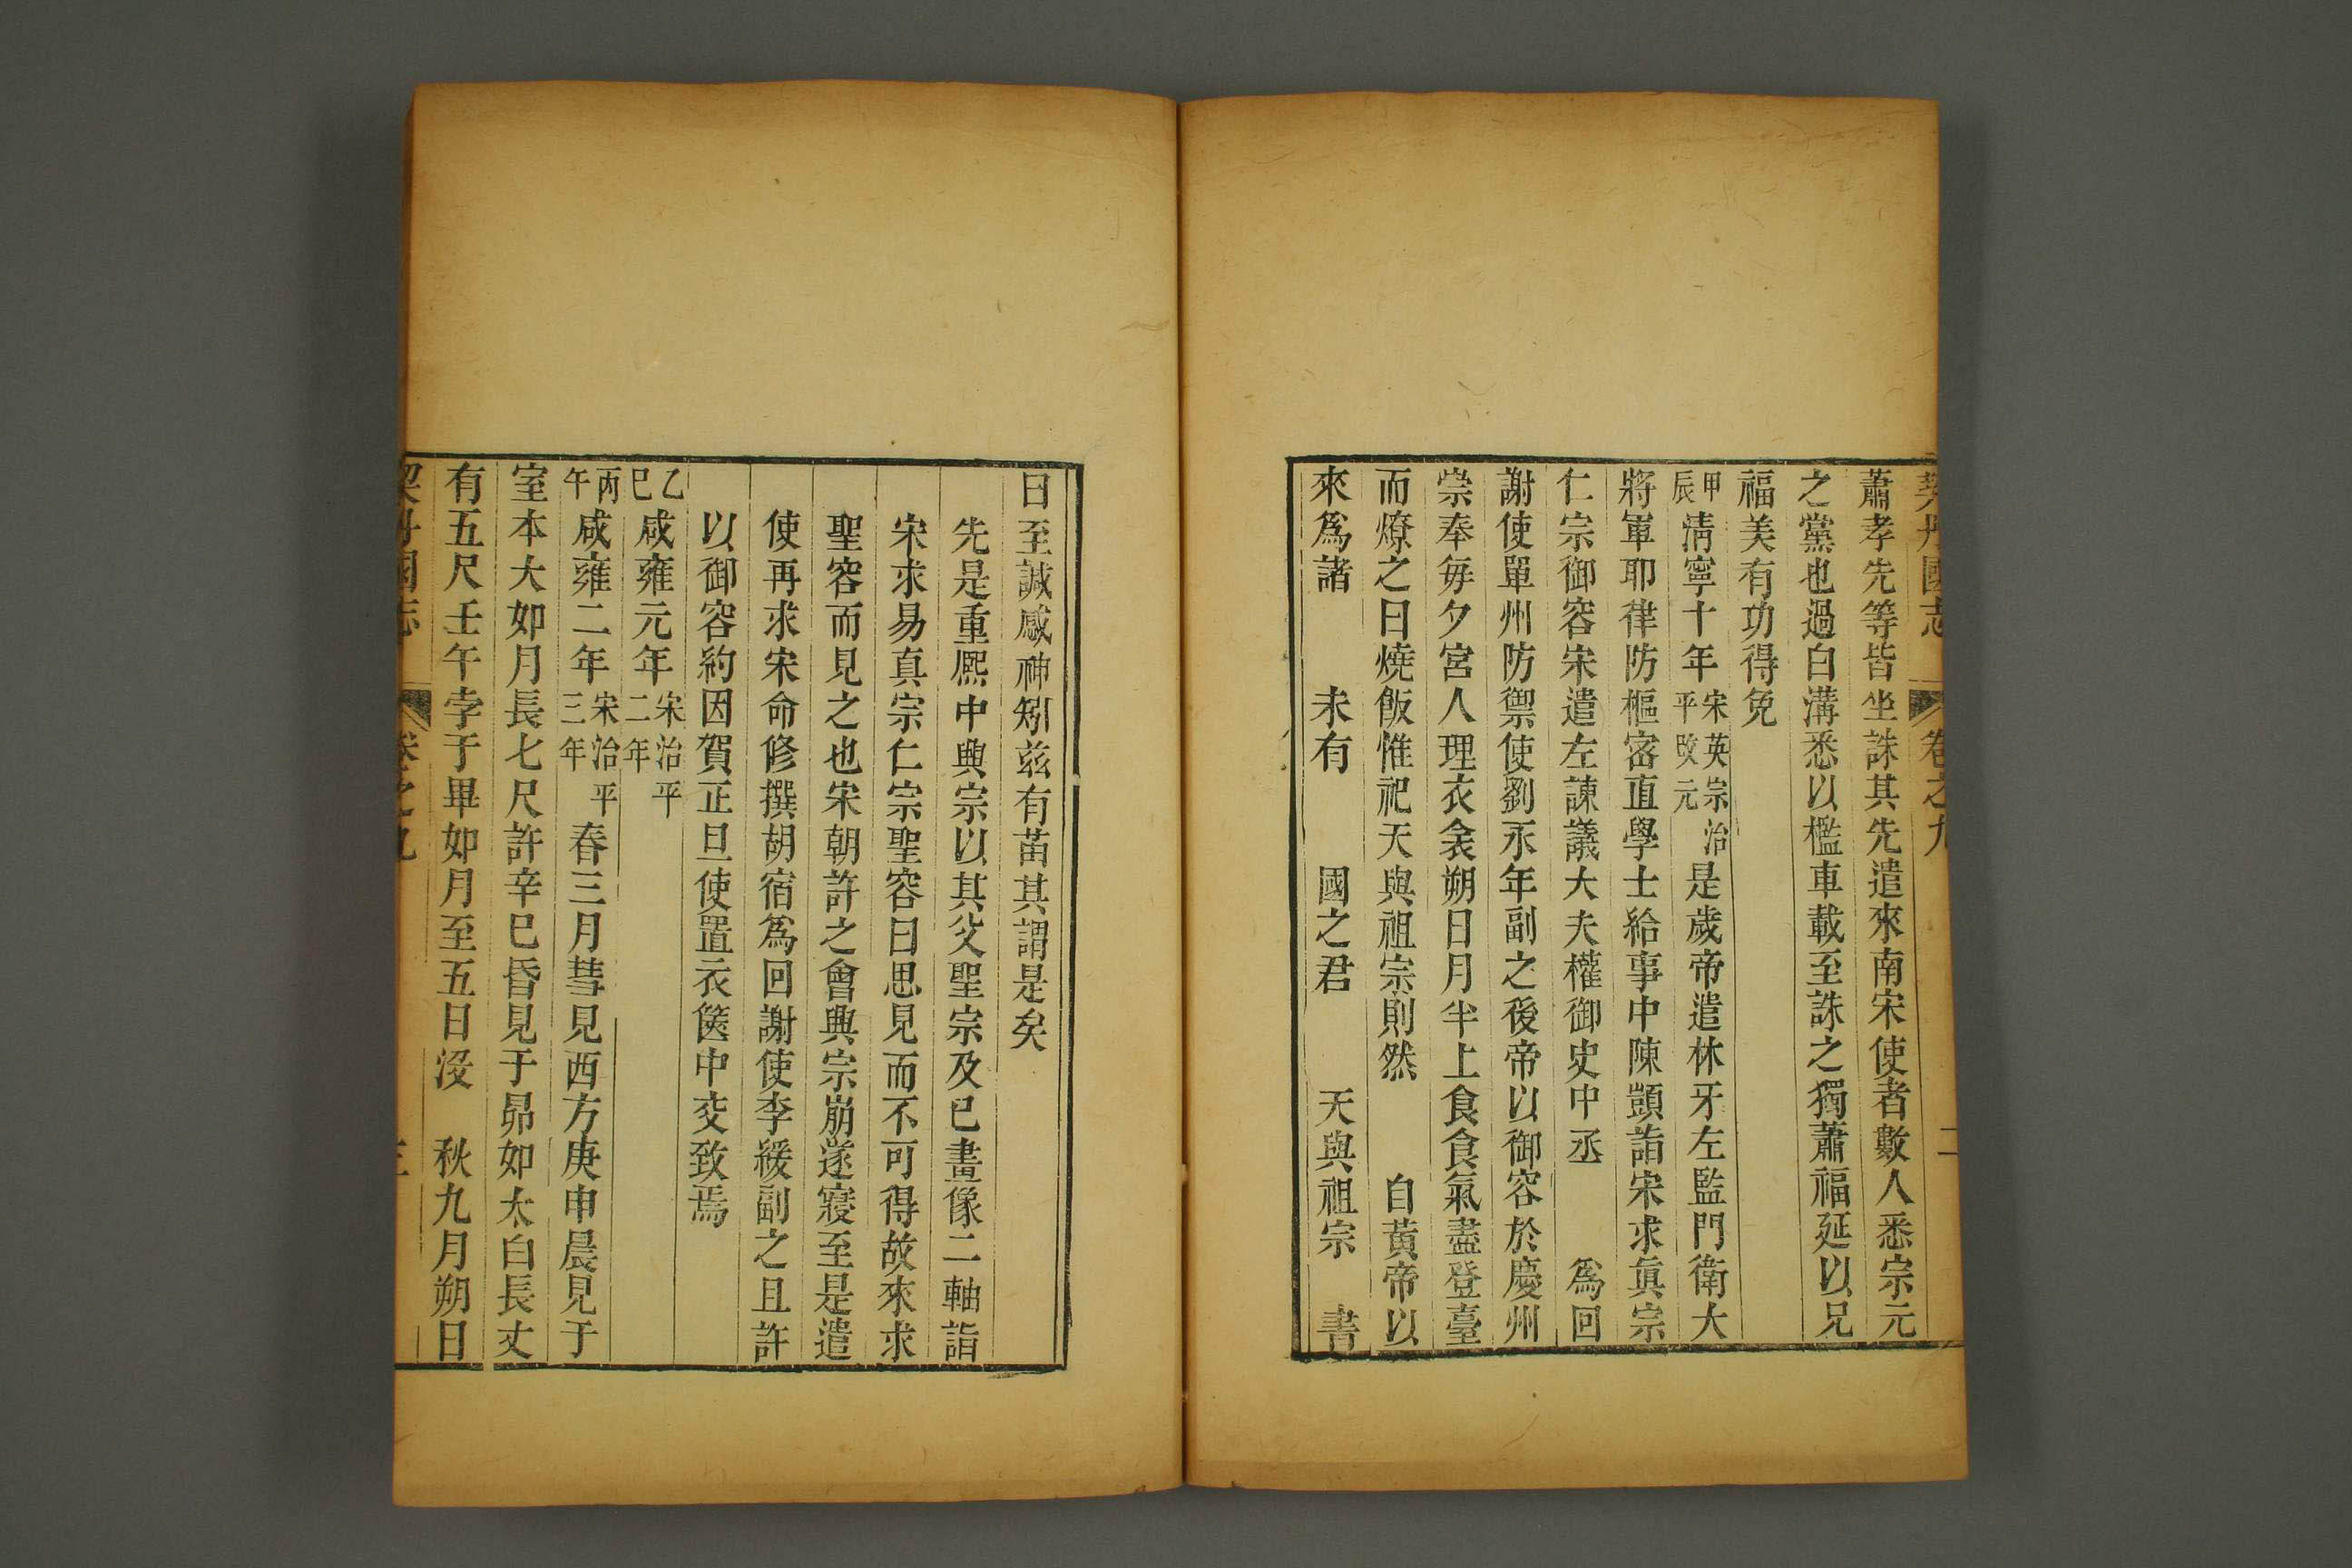 契丹國志 卷之九 二
蕭孝先等皆坐誅其先遣來南宋使者數人悉宗元
之黨也過白溝悉以檻車載至誅之獨蕭福延以兄
福美有功得免
甲辰清寧十年宋英宗治平改元是歲帝遣林牙左監門衛大
將軍耶律防樞密直學士給事中陳顗詣宋求眞宗
仁宗御容宋遣左諫議大夫權御史中丞 爲回
謝使單州防禦使劉永年副之後帝以御容於慶州
崇奉每夕宮人理衣衾朔日月半上食食氣盡登臺
而燎之曰燒飯惟祀天與祖宗則然 自黃帝以
來爲諸 未有 國之君 天與祖宗 書
曰至誠感神矧玆有苗其謂是矣
先是重熙中興宗以其父聖宗及已畫像二軸詣
宋求易真宗仁宗聖容曰思見而不可得故來求
聖容而見之也宋朝許之會興宗崩遂寢至是遣
使再求宋命修撰胡宿爲回謝使李綬副之且許
以御容約因賀正旦使置衣篋中交致焉
乙巳咸雍元年宋治平二年
丙午咸雍二年宋治平三年春三月彗見西方庚申晨見于
室本大如月長七尺許辛巳昏見于昴如太白長丈
有五尺壬午孛于畢如月至五日沒 秋九月朔日
契丹國志 卷之九 三